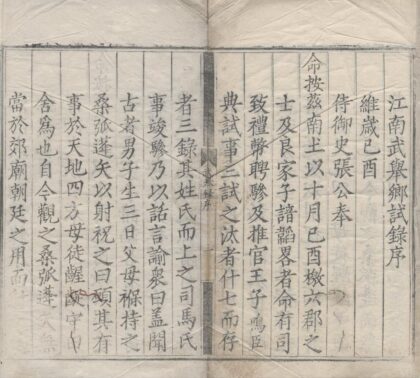 江南武舉鄉試錄序
維歲己酉
侍御史張公奉
命按茲南土以十月己酉檄六郡之
士及良家子諳韜畧者命有司
致禮幣聘驂及推官王子鳴臣
典試事三試之汰者什七而存
者三錄其姓氏而上之司馬氏
事竣驂乃以話言諭衆曰蓋聞
古者男子生三日父母褓持之
桑弧蓬矢以射祝之曰願其有
事於天地四方毋徒齷齪守
舍爲也自今觀之桑弧蓬矢無
當於郊廟朝廷之用而